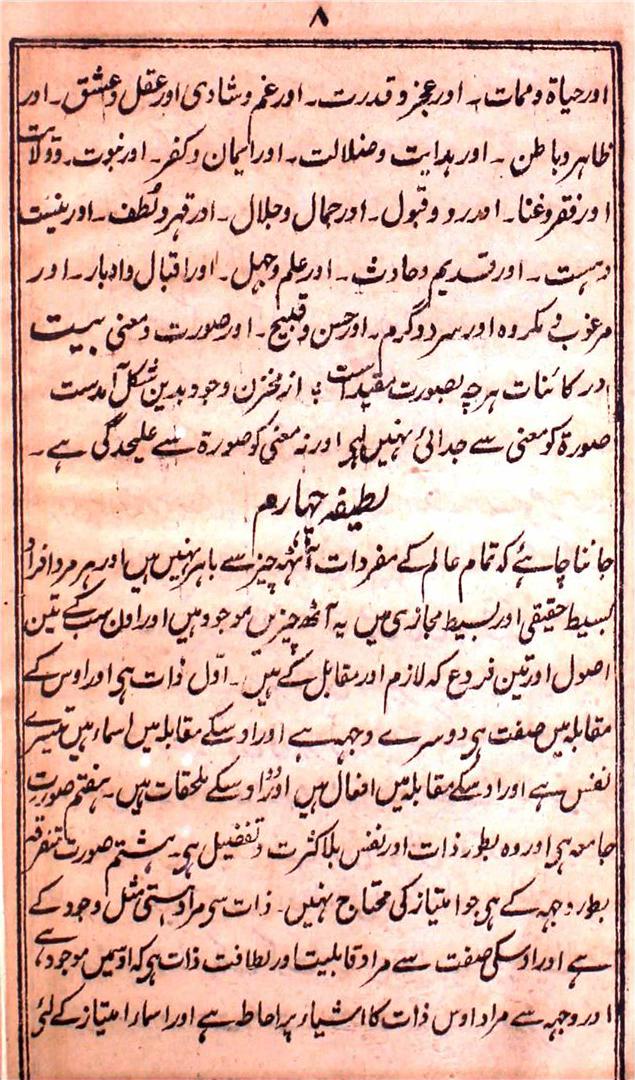 ۸
اور حیاۃ و ممات ۔ اور عجز و قدرت ۔ اور غم و شادی اور عقل و عشق ۔ اور
ظاہر و باطن ۔ اور ہدایت و ضلالت ۔ اور ایمان و کفر ۔ اور نبوت ۔ و ولایت
اور فقر و غنا ۔ اور رد و قبول ۔ اور جمال و جلال ۔ اور قہر و لُطف ۔ اور نیست
و ہست ۔ اور قدیم و حادث ۔ اور علم و جہل ۔ اور اقبال و ادبار ۔ اور
مرغوب و مکروہ اور سرد و گرم ۔ اور حسن و قبیح ۔ اور صورت و معنی بیت
در کائنات ہرچہ بصورت مقیدست ؛ از مخزن وجود بدین شکل آمدست
صورۃ کو معنی سے جدائی نہیں ہی اور نہ معنی کو صورۃ سے علیحدگی ہے ۔
لطیفہ چہارم
جاننا چاہئے کہ تمام عالم کے مفردات آٹھہ چیز سے باہر نہیں ہیں اور ہر مرد افراد
بسیط حقیقی اور بسیط مجازی میں یہ آٹھ چیزیں موجود ہیں اور اون سب کے تین
اصول اور تین فروع کہ لازم اور مقابل کے ہیں ۔ اوّل ذات ہی اور اوس کے
مقابلہ میں صفت ہی دوسرے وجہہ ہے اور اوسکے مقابلہ میں اسماء ہیں تیسرے
نفس ہے اور اوسکے مقابلہ میں افعال ہیں اور اوسکے ملحقات ہیں ۔ ہفتم صورت
جامعہ ہی اور وہ بطور ذات اور نفس بلا کثرت و تفصیل ہی ۔ ہشتم صورت متفرقہ
بطور وجہہ کے ہی جو امتیاز کی محتاج نہیں ۔ ذات سی مراد ہستی مثل وجود کے
ہے اور اوسکی صفت سے مراد قابلیت اور لطافت ذات ہی کہ اوسمیں موجود ہے
اور وجہہ سے مراد اوس ذات کا اشیاء پر احاطہ ہے اور اسماء امتیاز کے لئی